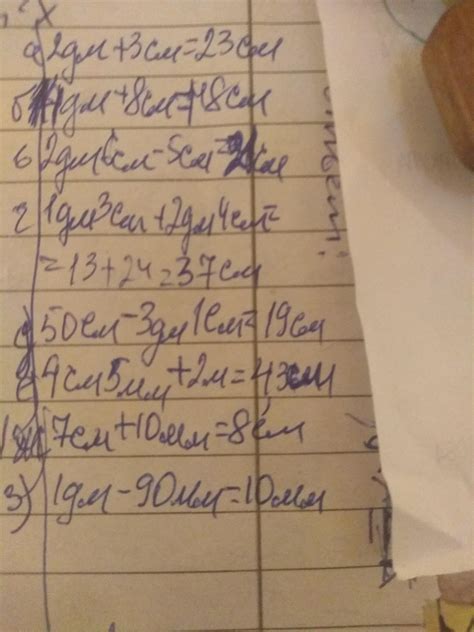 а) 2дм+3см=23см
б) 1дм+8см=18см
в 2дм6см-5см=21см
г 1дм3см+2дм4см=
=13+24=37см
50см-3дм1см=19см
4см5мм+2м=43
7см+10мм=8см
з) 1дм-90мм=10мм